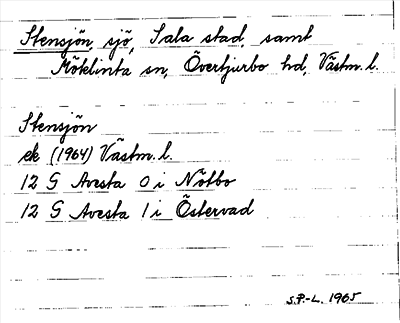 Stensjön, sjö, Sala stad, samt
Möklinta sn, Övertjurbo hd, Västm. l.
Stensjön
ek (1964) Västm. l.
12 G Avesta 0 i Nötbo
12 G Avesta 1 i Östervad
S.P.-L. 1965